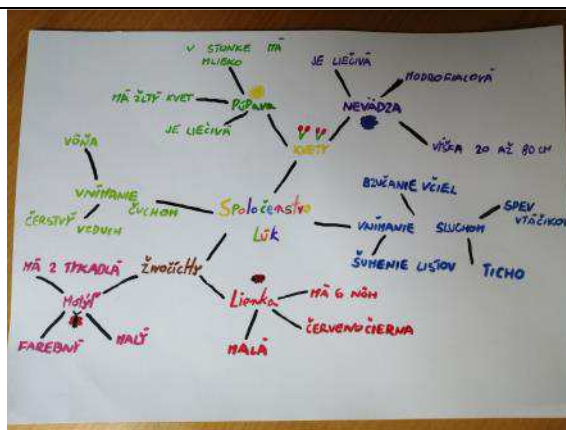 V STONKE MÁ
MLIEKO
MÁ ŽLTÝ KVET
PÚPAVA
JE LIEČIVÁ
JE LIEČIVÁ
MODROFIALOVÁ
NEVÄDZA
VÝŠKA 20 AŽ 80 CM
KVETY
VÔŇA
VNÍMANIE
ČUCHOM
ČERSTVÝ
VZDUCH
Spoločenstvo
Lúk
BZUČANIE VČIEL
VNÍMANIE SLUCHOM
SPEV
VTÁČIKOV
ŠUMENIE LISTOV
TICHO
ŽIVOČÍCHY
MÁ 2 TYKADLÁ
Motýľ
FAREBNÝ
MALÝ
Lienka
MÁ 6 NÔH
ČERVENOČIERNA
MALÁ